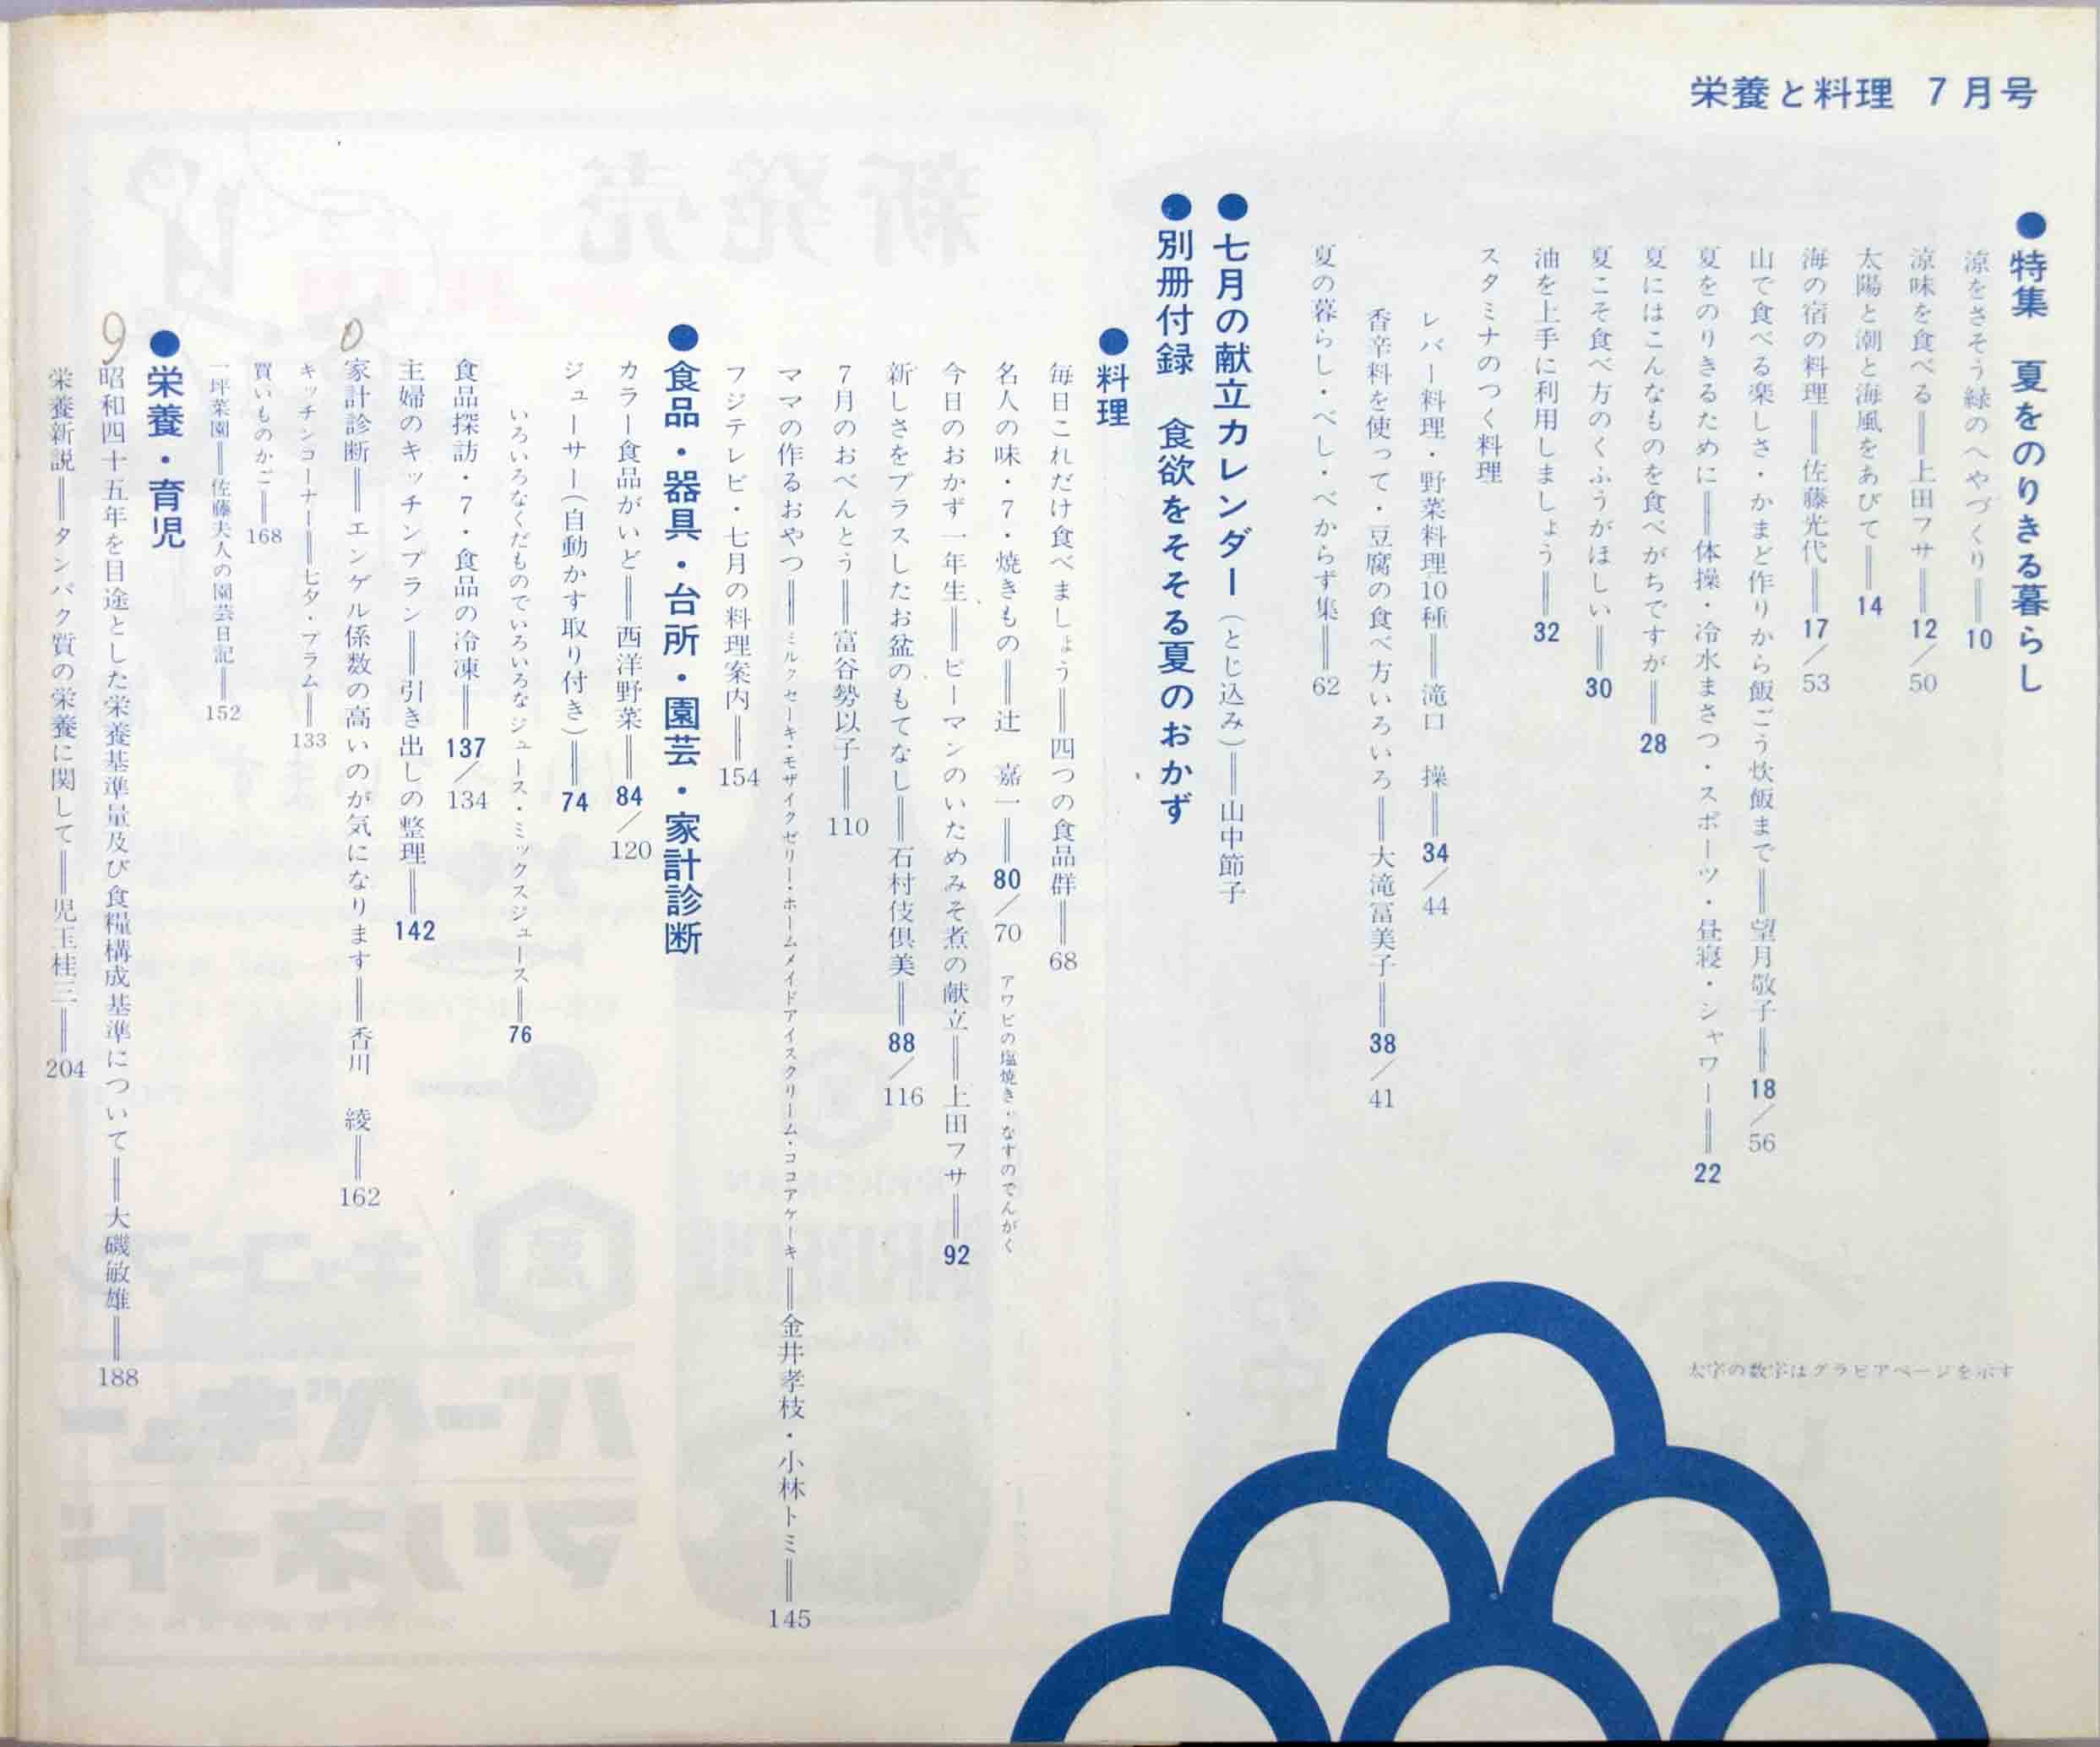 栄養と料理 7月号
●特集 夏をのりきる暮らし
涼をさそう緑のへやづくり＝10
涼味を食べる＝上田フサ＝12／50
太陽と潮と海風をあびて＝14
海の宿の料理＝佐藤光代＝17／53
山で食べる楽しさ・かまど作りから飯ごう炊飯まで＝望月敬子＝18／56
夏をのりきるために＝体操・冷水まさつ・スポーツ・昼寝・シャワー＝22
夏にはこんなものを食べがちですが＝28
夏こそ食べ方のくふうがほしい＝30
油を上手に利用しましょう＝32
スタミナのつく料理
レバー料理・野菜料理10種＝滝口 操＝34／44
香辛料を使って・豆腐の食べ方いろいろ＝大滝冨美子＝38／41
夏の暮らし・べし・べからず集＝62
●七月の献立カレンダー（とじ込み）＝山中節子
●別冊付録 食欲をそそる夏のおかず
●料理
毎日これだけ食べましょう＝四つの食品群＝68
名人の味・7・焼きもの＝辻 嘉一＝80／70 アワビの塩焼き・なすのでんがく
今日のおかず一年生＝ピーマンのいためみそ煮の献立＝上田フサ＝92
新しさをプラスしたお盆のもてなし＝石村伎倶美＝88／116
7月のおべんとう＝富谷勢以子＝110
ママの作るおやつ＝ミルクセーキ・モザイクゼリー・ホームメイドアイスクリーム・ココアケーキ＝金井孝枝・小林トミ＝145
フジテレビ・七月の料理案内＝154
●食品・器具・台所・園芸・家計診断
カラー食品がいど＝西洋野菜＝84／120
ジューサー（自動かす取り付き）＝74
いろいろなくだものでいろいろなジュース・ミックスジュース＝76
食品探訪・7・食品の冷凍＝137／134
主婦のキッチンプラン＝引き出しの整理＝142
家計診断＝エンゲル係数の高いのが気になります＝香川 綾＝162
キッチンコーナー＝七夕・プラム＝133
買いものかご＝168
一坪菜園＝佐藤夫人の園芸日記＝152
●栄養・育児
9
昭和四十五年を目途とした栄養基準量及び食糧構成基準について＝大磯敏雄＝188
栄養新説＝タンパク質の栄養に関して＝児玉桂三＝204
太字の数字はグラビアページを示す